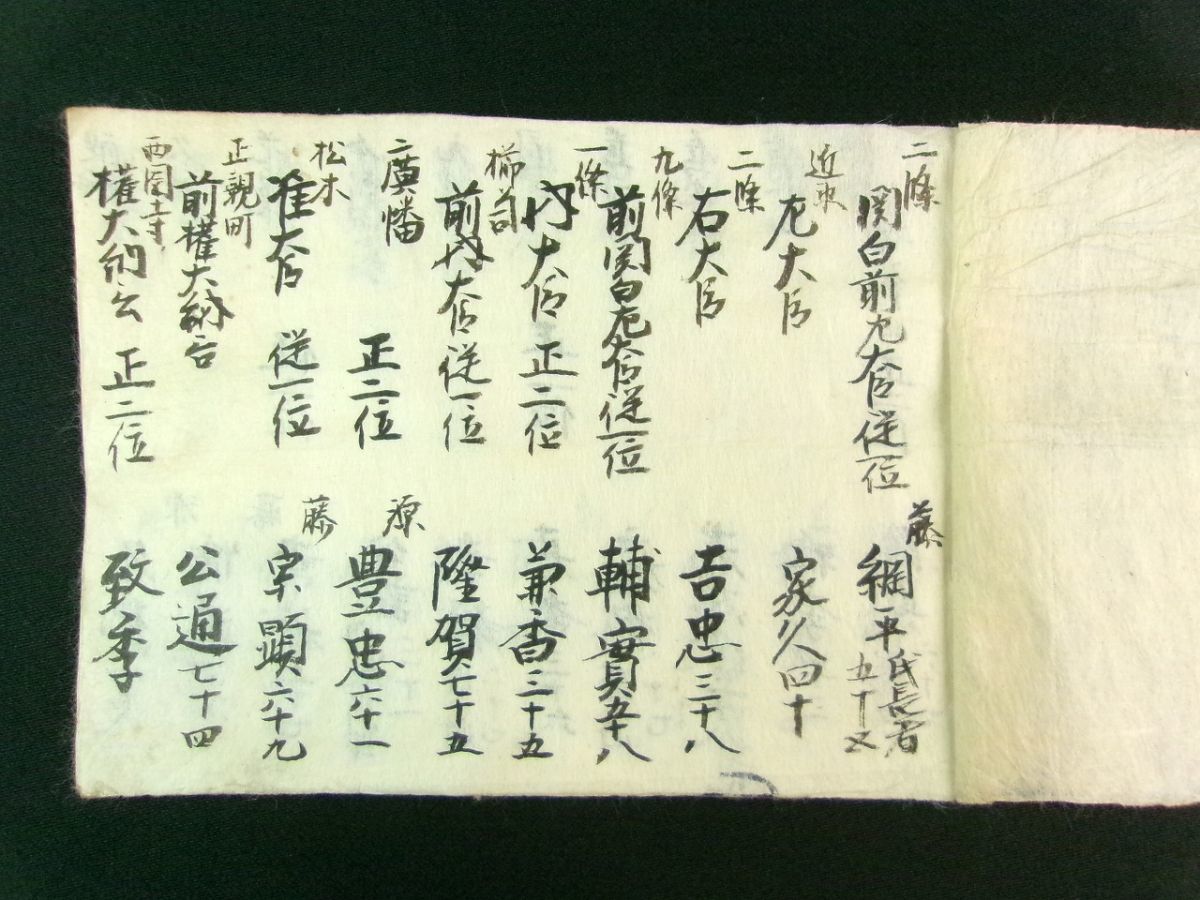 二條
関白前左大臣従一位 藤 綱平 氏長者 五十五
近衛
左大臣 家久 四十
二條
右大臣 吉忠 三十八
九條
前関白左大臣従一位 輔實 五十八
一條
内大臣 正二位 兼香 三十五
櫛司
前内大臣従一位 隆賀 七十五
廣幡
正二位 源 豊忠 六十一
松木
准大臣 従一位 藤 宗顕 六十九
正親町
前權大納言 公通 七十四
西園寺
權大納言 正二位 致季